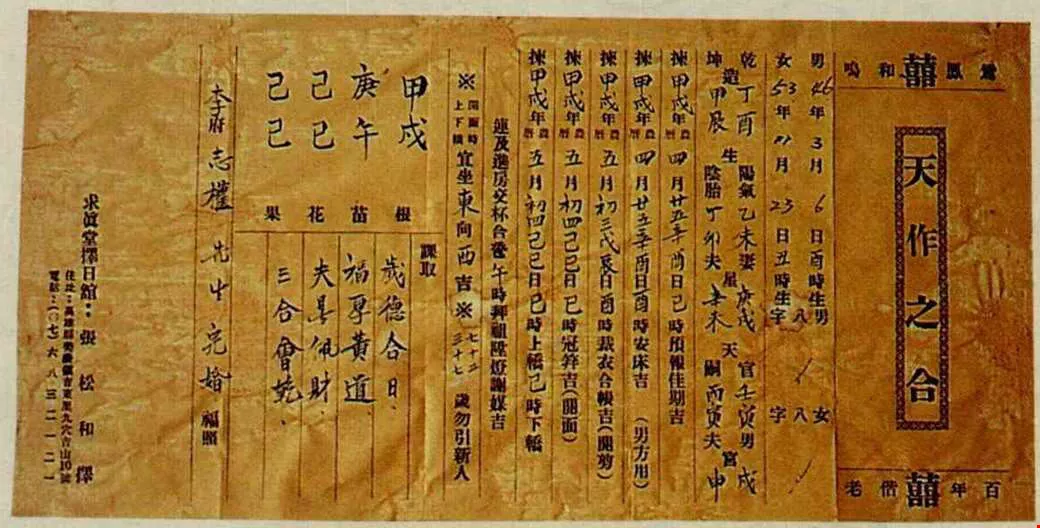 鸞鳳和鳴
囍
天作之合
囍
百年偕老
男46年3月6日酉時生男八女
女53年11月23日丑時生字八字
乾造丁酉生陽氣乙未妻星庚戌天官壬寅男宮戌
坤造甲辰生陰胎丁卯夫星辛未天嗣丙寅夫宮申
揀甲戌年農曆四月廿五辛酉日巳時預報佳期吉
揀甲戌年農曆四月廿五辛酉日酉時安床吉(男方用)
揀甲戌年農曆五月初三戊辰日酉時裁衣合帳吉(開剪)
揀甲戌年農曆五月初四己巳日巳時冠笄吉(開面)
揀甲戌年農曆五月初四己巳日巳時上轎己時下轎
連及進房交杯合卺午時拜祖陞燈謝媒吉
※開面時上下轎宜坐東向西吉※七十三三十七歲勿引新人
甲戌根
庚午苗
己巳花
己巳果
課取
歲德合日、
福厚黃道、
夫星佩財、
三合會乾、
李府志權先生完婚福照
求眞堂擇日館:張松和擇
電話:(〇七)六八三二一二一